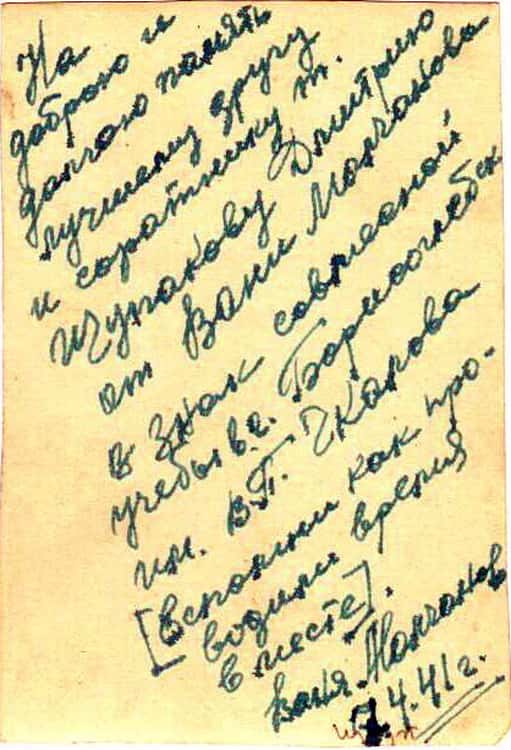 На
доброю и
долгою память
лучшему другу
и соратнику т.
Щупакову Дмитрию
от Вани Молчанова
в знак совместной
учебы в г. Борисоглебск
им. В.П. Чкалова
[Вспомни как про-
водили время
вместе].
Ваня. Молчанов
7.4.41 г.